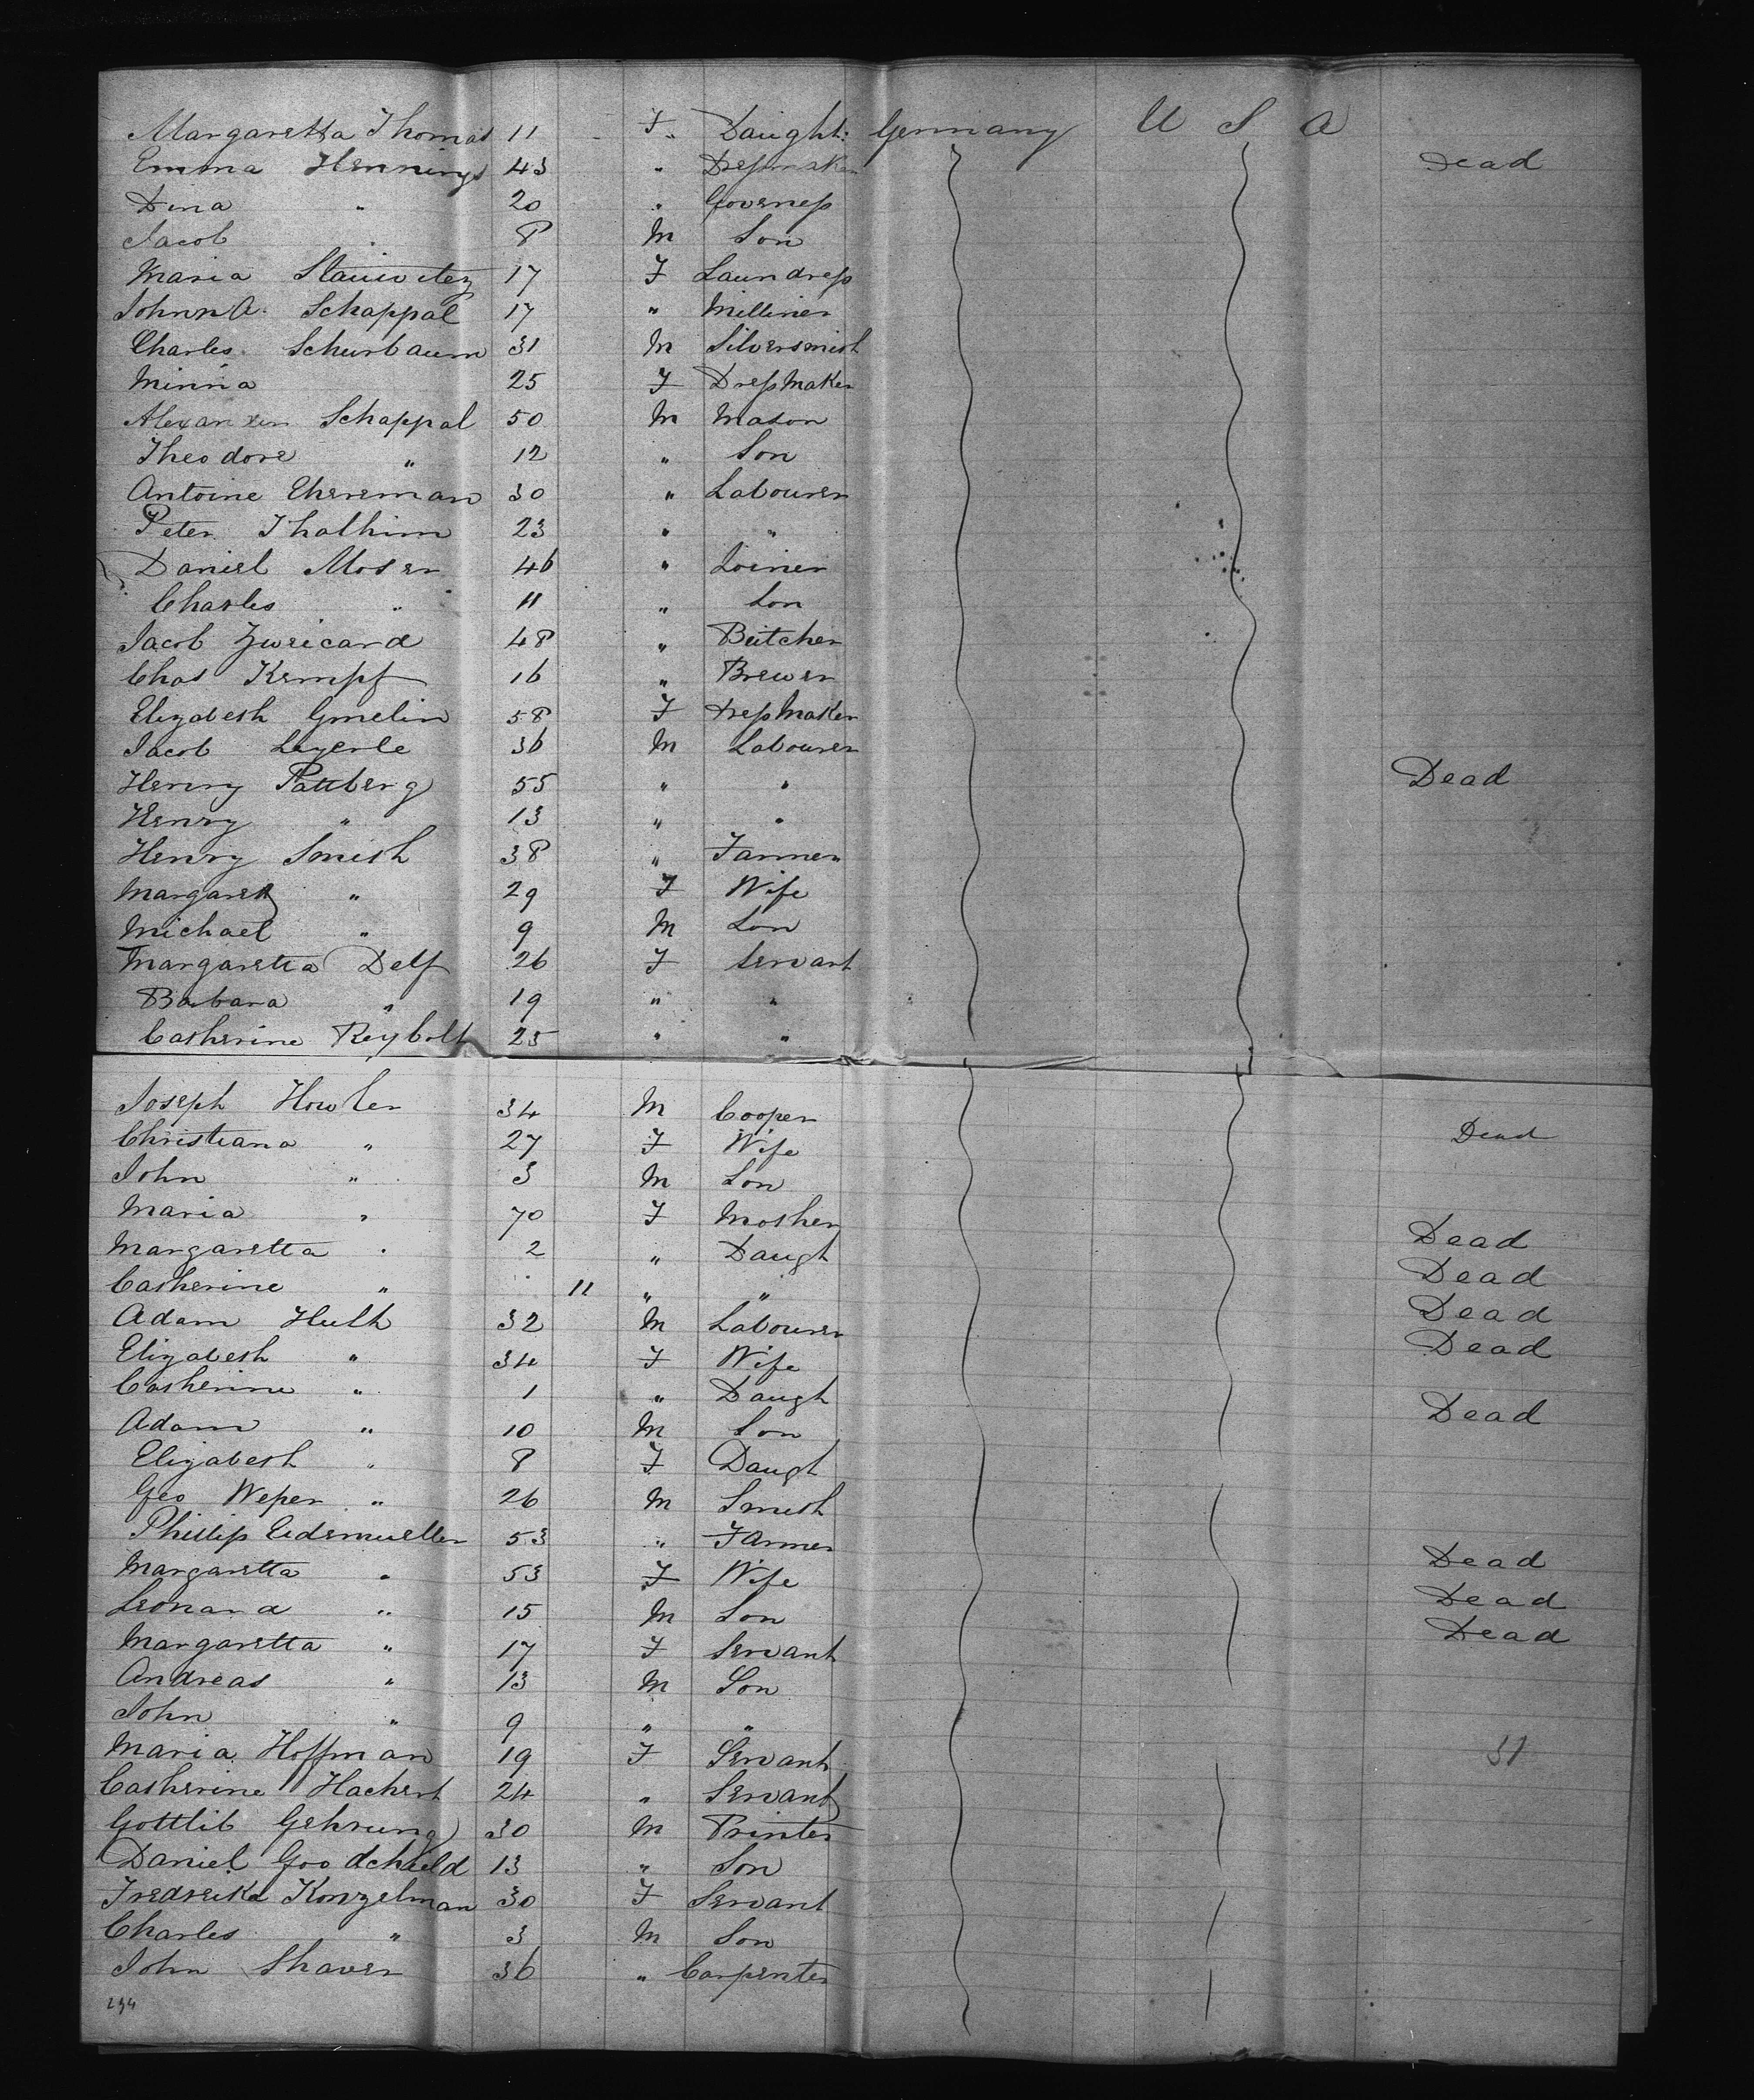 Margaretta Thomas 11 F. Daught: Germany U S A
Emma Hennings 43 " Dressmaker Dead
Dina " 20 " Governess
Jacob " 8 M Son
Maria 17 F Laundress
Johnna Schappal 17 " Milliner
Charles Scheurbaum 31 M Silversmith
Minna 25 F DressMaker
Alexander Schappal 50 M Mason
Theodore " 12 " Son
Antoine Ehereman 30 " Labourer
Peter Thalhim 23 " "
Daniel Moser 46 " Joiner
Charles " 11 " Son
Jacob Zwricard 48 " Butcher
Chas Kempf 16 " Brewer
Elizabeth Gmelin 58 F DressMaker
Jacob Leyerle 36 M Labourer
Henry Pattberg 55 " " Dead
Henry " 13 " "
Henry Smith 38 " Farmer
Margaret " 29 F Wife
Michael " 9 M Son
Margaretta Delf 26 F Servant
Barbara " 19 " "
Catherine Reybolt 25 " "
Joseph Howler 34 M Cooper
Christiana " 27 F Wife Dead
John " 3 M Son
Maria " 70 F Mother
Margaretta " 2 " Daugt Dead
Catherine " 11 " " Dead
Adam Huth 32 M Labourer Dead
Elizabeth " 34 F Wife Dead
Catherine " 1 " Daugt
Adam " 10 M Son Dead
Elizabeth " 8 F Daugt
Geo Weper " 26 M Smith
Phillip Eidemueller 53 " Farmer
Margaretta " 53 F Wife Dead
Leonard " 15 M Son Dead
Margaretta " 17 F Servant Dead
Andreas " 13 M Son
John " 9 " "
Maria Hoffman 19 F Servant 31
Catherine Hachert 24 " Servant
Gottlib Gehrung 30 M Printer
Daniel Goodcheild 13 " Son
Fredreika Konzelman 30 F Servant
Charles " 3 M Son
John Shaver 36 " Carpenter
234